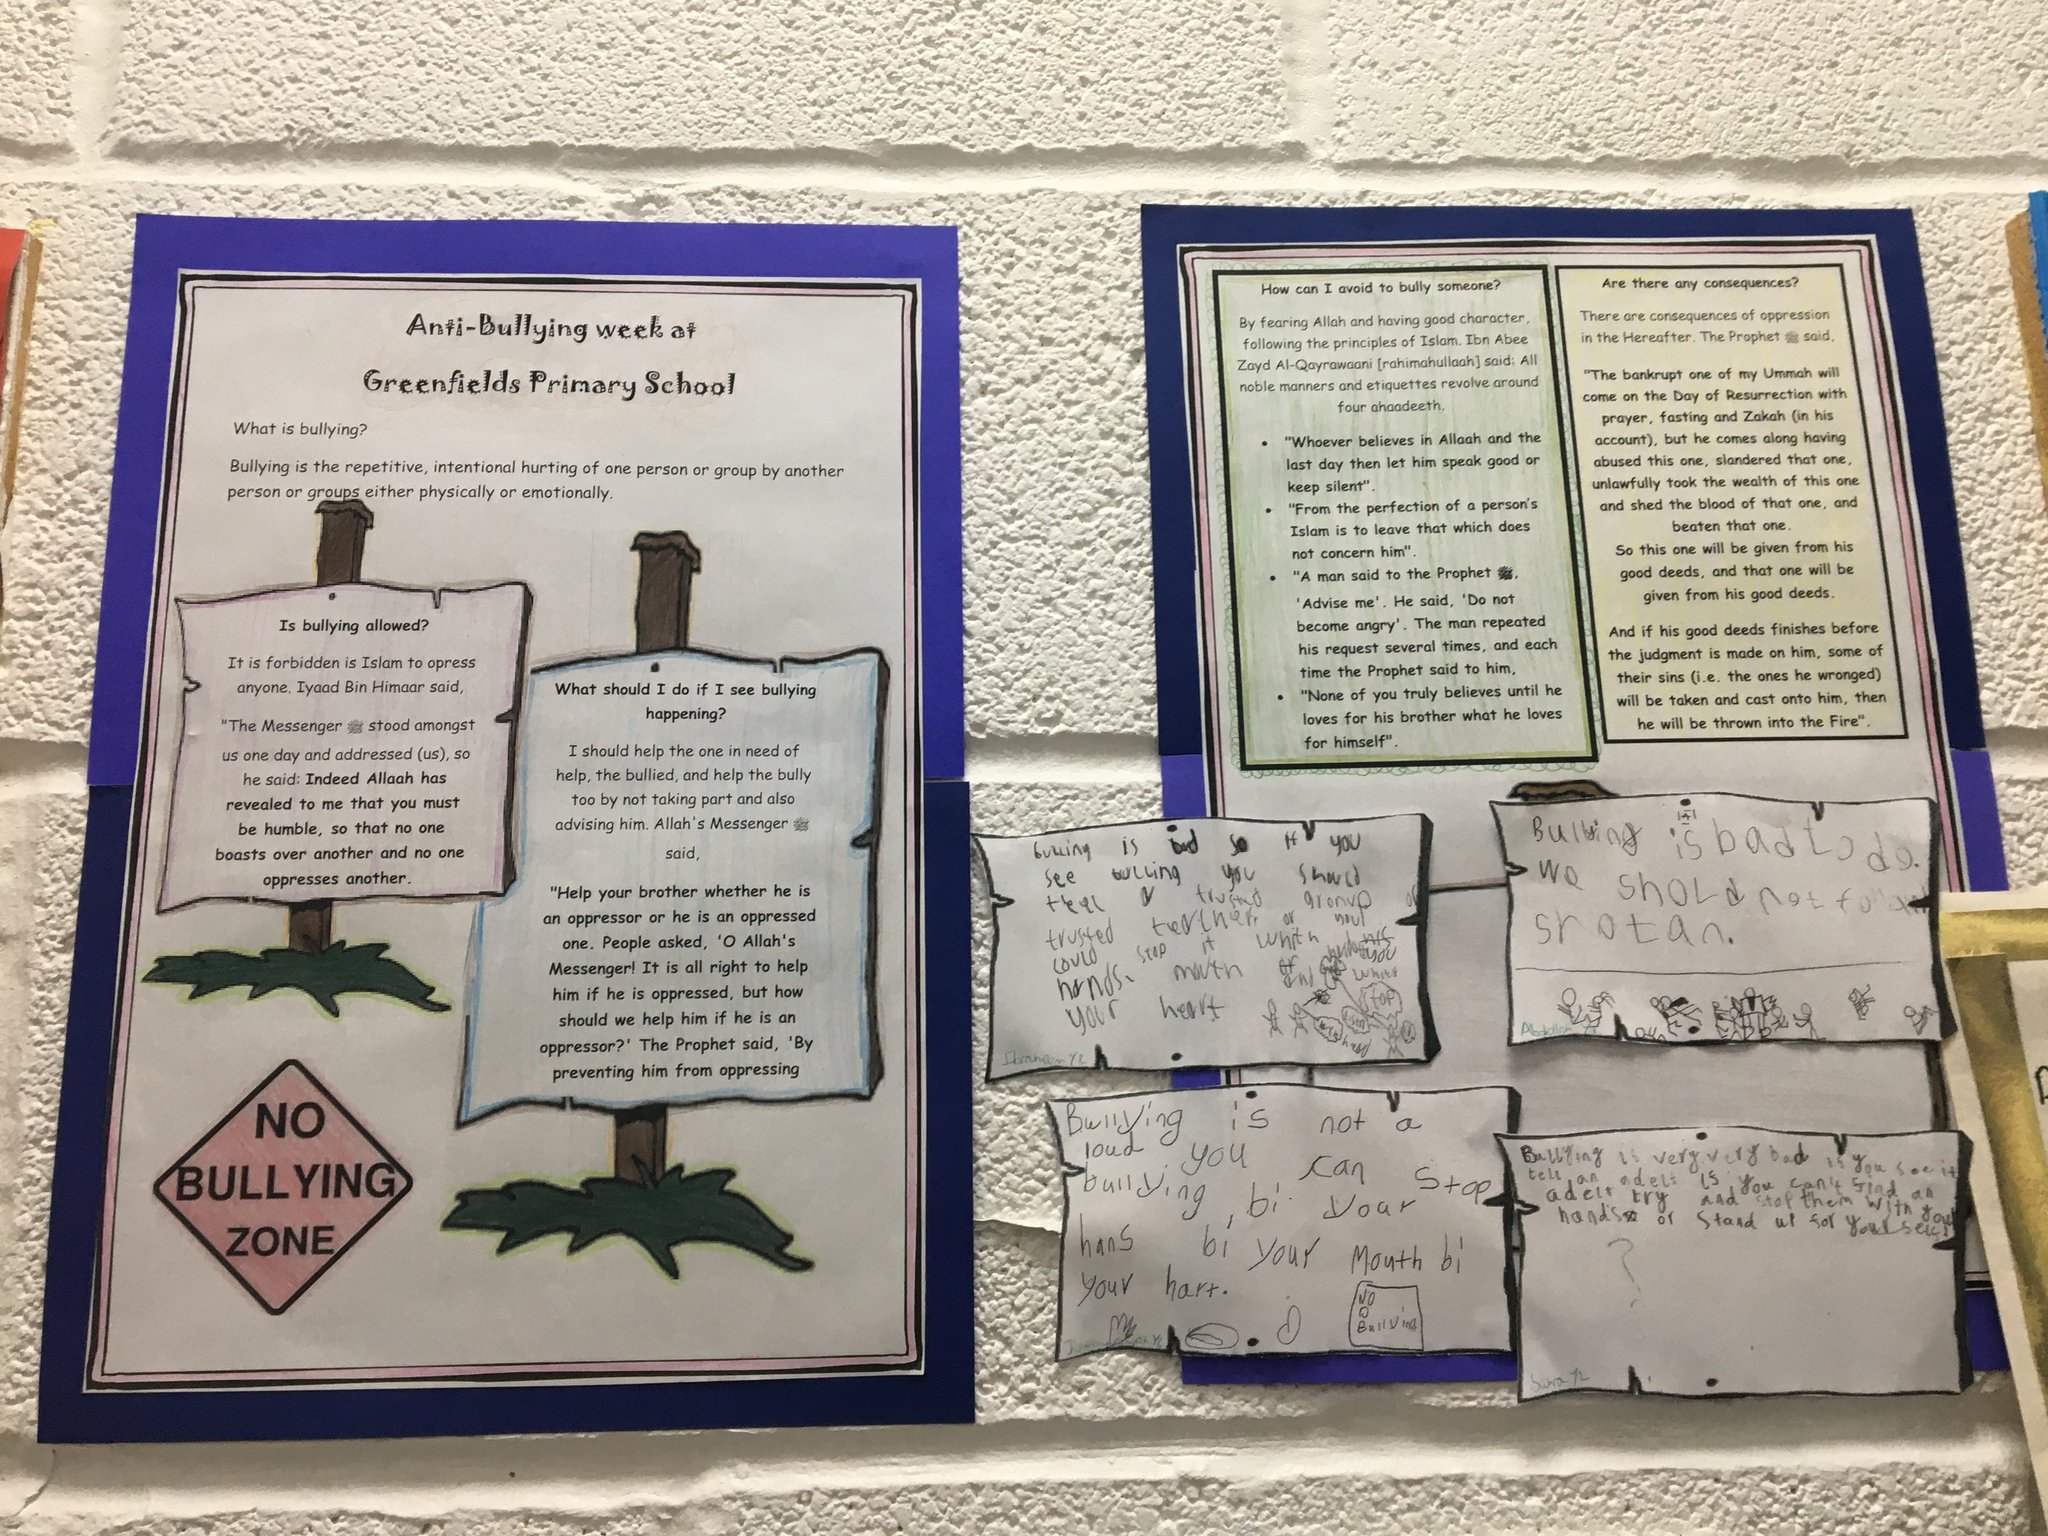 Anti-Bullying week at
Greenfields Primary School
What is bullying?
Bullying is the repetitive, intentional hurting of one person or group by another
person or groups either physically or emotionally.
Is bullying allowed?
It is forbidden is Islam to opress
anyone. Iyaad Bin Himaar said,
"The Messenger ﷺ stood amongst
us one day and addressed (us), so
he said: Indeed Allaah has
revealed to me that you must
be humble, so that no one
boasts over another and no one
oppresses another.
What should I do if I see bullying
happening?
I should help the one in need of
help, the bullied, and help the bully
too by not taking part and also
advising him. Allah's Messenger ﷺ
said,
"Help your brother whether he is
an oppressor or he is an oppressed
one. People asked, 'O Allah's
Messenger! It is all right to help
him if he is oppressed, but how
should we help him if he is an
oppressor?' The Prophet said, 'By
preventing him from oppressing
NO
BULLYING
ZONE
How can I avoid to bully someone?
By fearing Allah and having good character,
following the principles of Islam. Ibn Abee
Zayd Al-Qayrawaani [rahimahullaah] said; All
noble manners and etiquettes revolve around
four ahaadeeth.
• "Whoever believes in Allaah and the
last day then let him speak good or
keep silent".
• "From the perfection of a person's
Islam is to leave that which does
not concern him".
• "A man said to the Prophet ﷺ,
'Advise me'. He said, 'Do not
become angry'. The man repeated
his request several times, and each
time the Prophet said to him,
• "None of you truly believes until he
loves for his brother what he loves
for himself".
Are there any consequences?
There are consequences of oppression
in the Hereafter. The Prophet ﷺ said,
"The bankrupt one of my Ummah will
come on the Day of Resurrection with
prayer, fasting and Zakah (in his
account), but he comes along having
abused this one, slandered that one,
unlawfully took the wealth of this one
and shed the blood of that one, and
beaten that one.
So this one will be given from his
good deeds, and that one will be
given from his good deeds.
And if his good deeds finishes before
the judgment is made on him, some of
their sins (i.e. the ones he wronged)
will be taken and cast onto him, then
he will be thrown into the Fire".
bulling is bad so if you
see bulling you should
a trusted
trusted or
could stop it
hands. mouth
your heart
Bullying is bad to do.
we shold not follow
Bullying is not a
loud you can stop
bullying bi your
hans bi your mouth bi
your hart.
NO
Bullying
Bullying is very very bad is you see it
tell an adelt is you can't find an
adelt try and stop them with your
hands or stand up for your self
Sara Y2